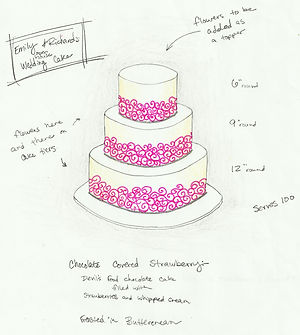 Emily & Richards
Wedding Cake
flowers to be
added as
a topper
6" round
flowers here
and there on
cake tiers
9" round
12" round
Serves 100
Chocolate Covered Strawberry:
Devil's Food chocolate cake
filled with
Strawberries and whipped cream
Frosted in Buttercream